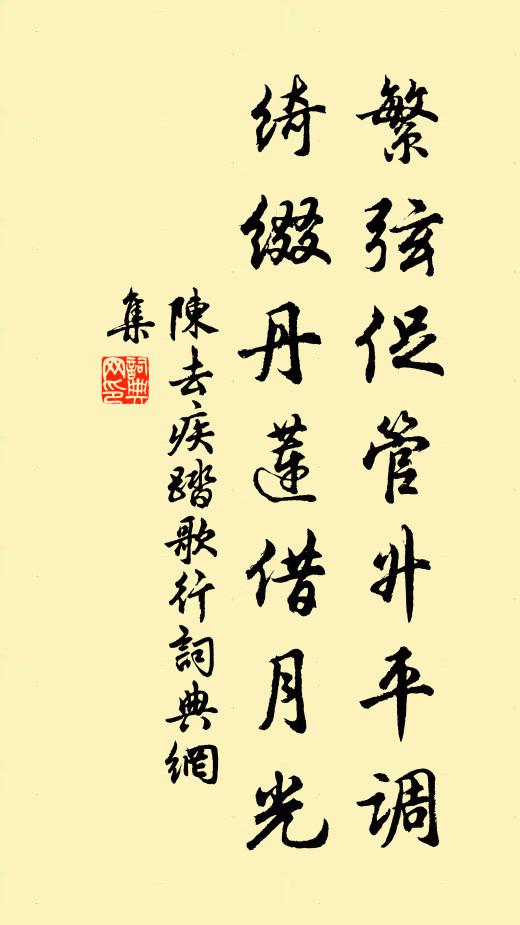 繁弦促管升平调
绮缀丹莲借月光
陳去疾踏歌行詞典網
集
詞典
网印